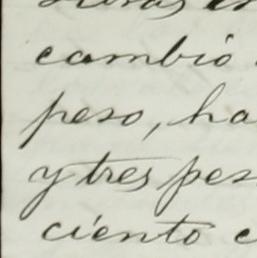 cambió
peso, ha
y tres pes
ciento c